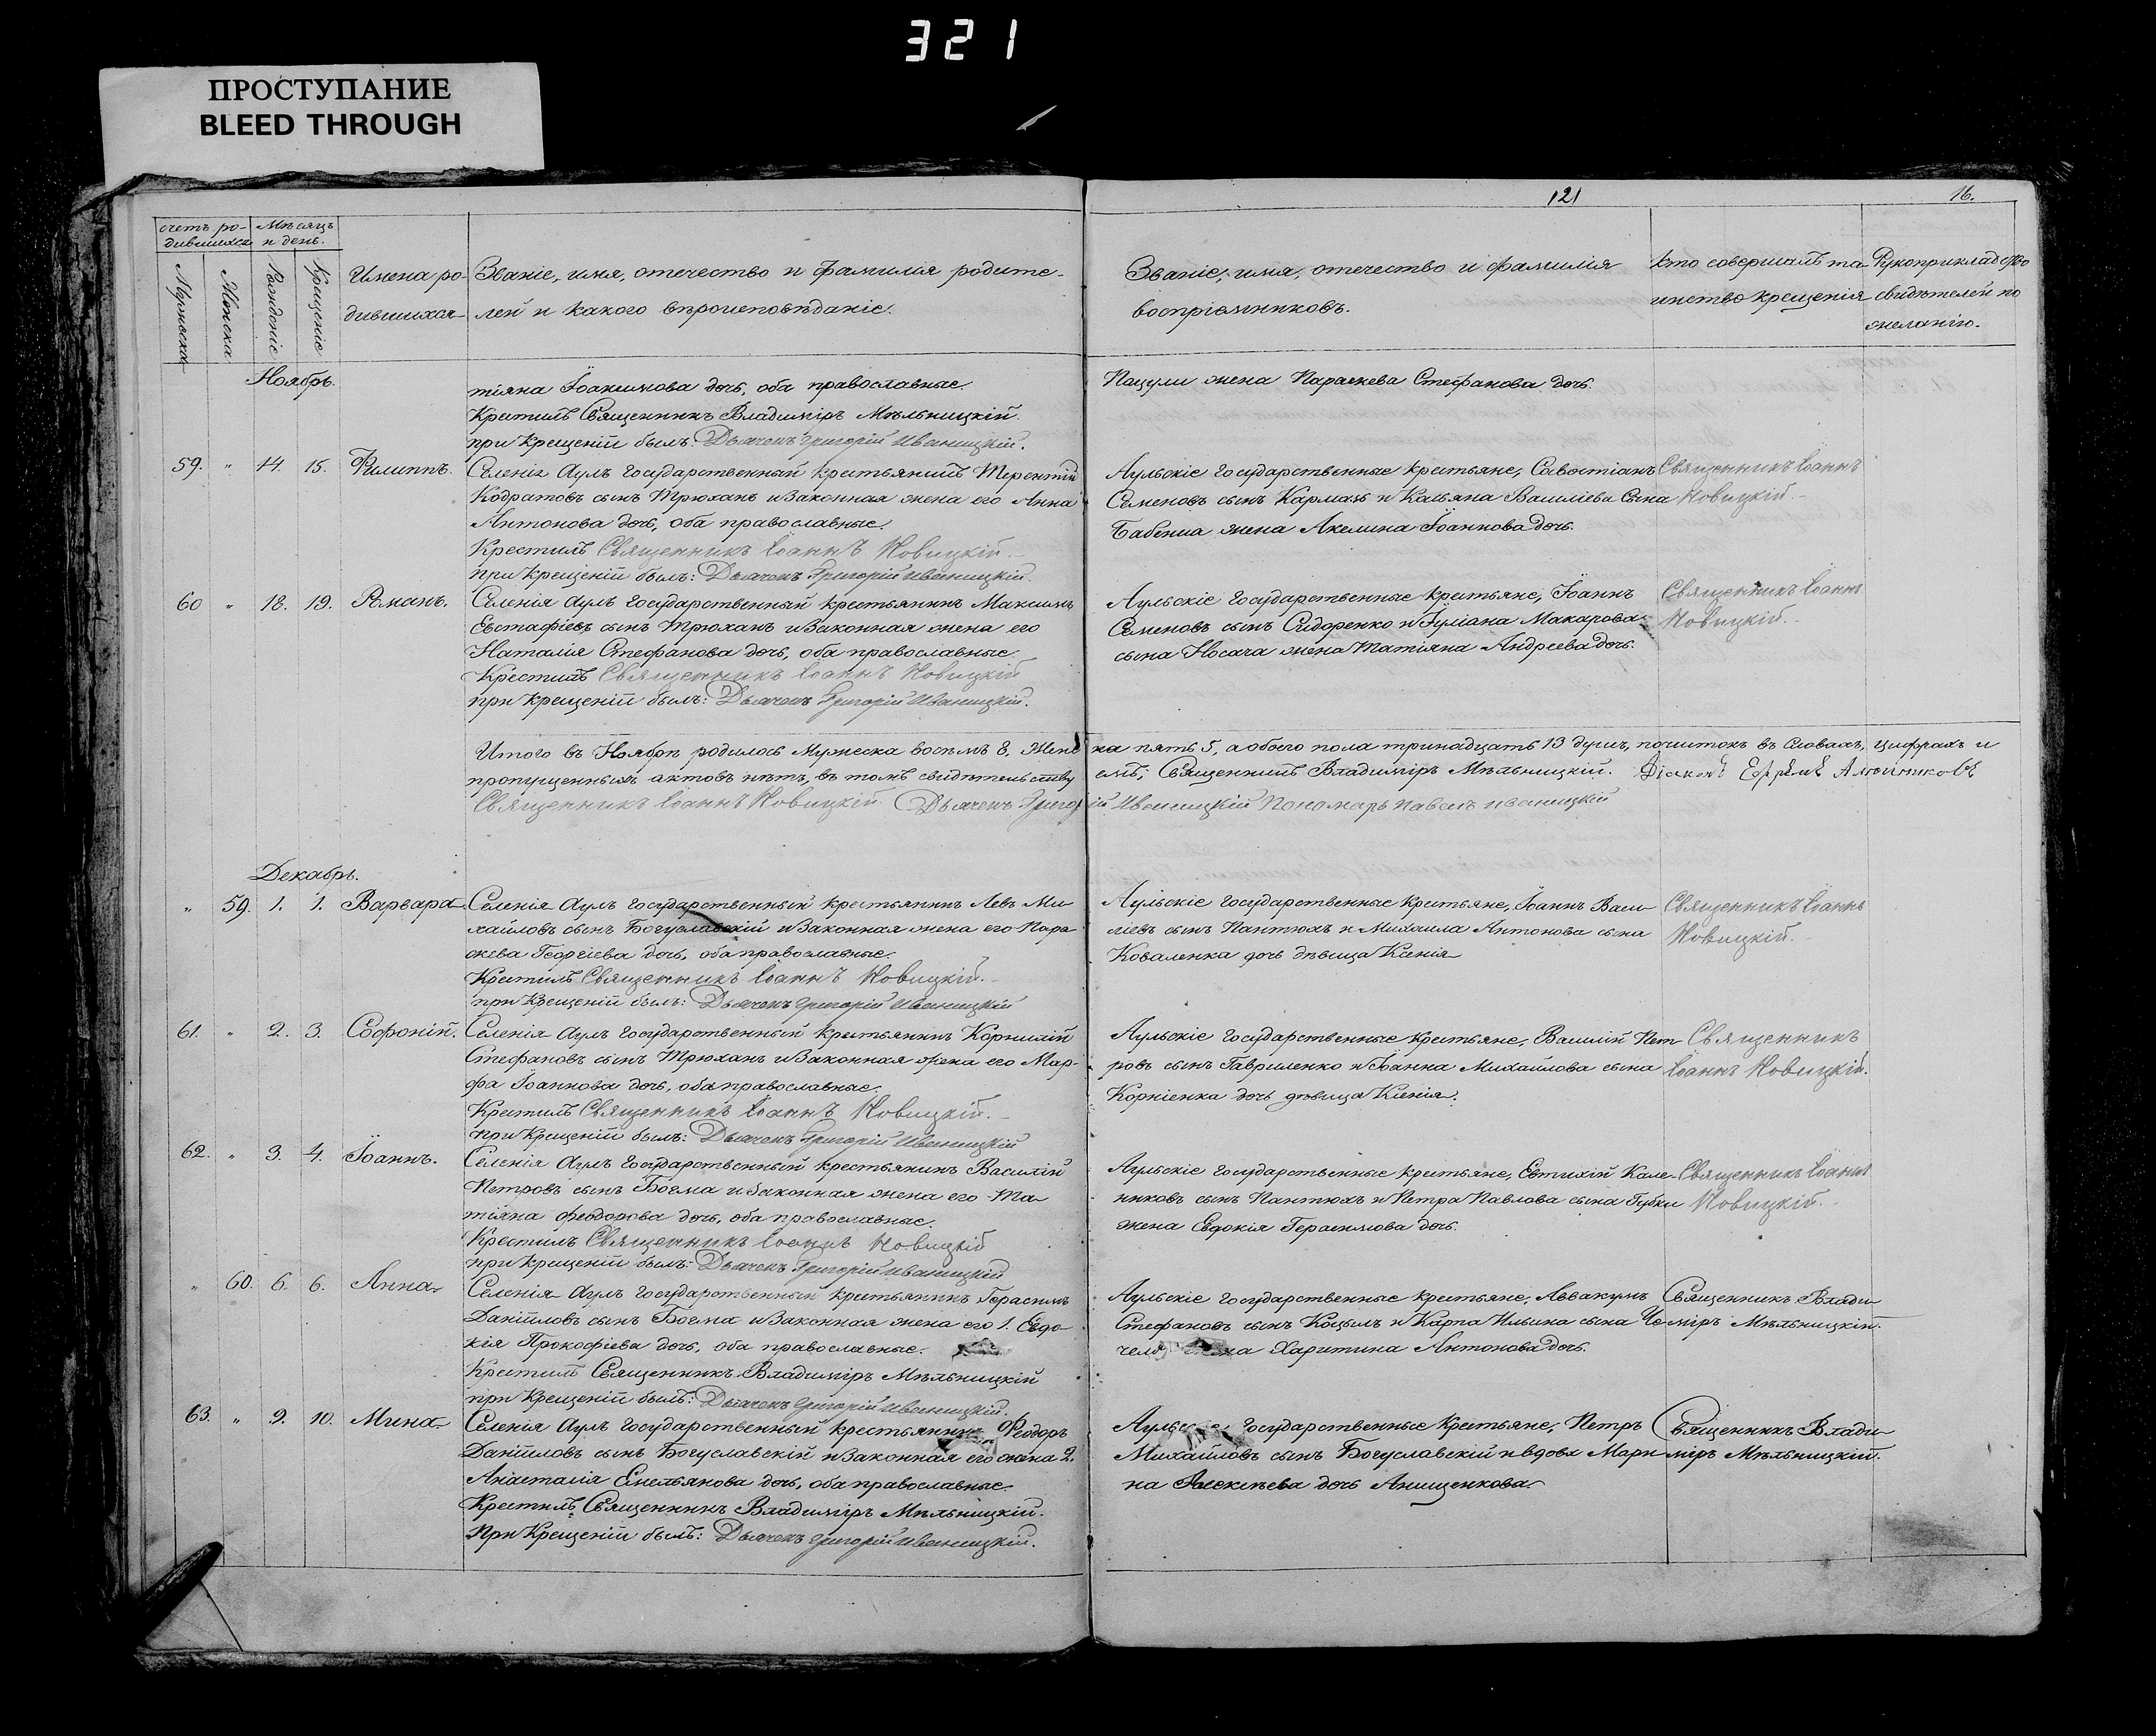 321
ПРОСТУПАНИЕ
BLEED THROUGH
121
16.
счетъ ро-
дившихся
Мѣсяцъ
и день.
Мужеска
Женска
Рожденіе
Крещеніе
Имена ро-
дившихся
Званіе, имя, отечество и фамилія родите-
лей и какого вѣроисповѣданіе.
Званіе, имя, отечество и фамилія
воспріемниковъ.
Кто совершалъ та-
инство крещенія
Рукоприкладство
свидѣтелей по
желанію.
Ноябрь.
тіяна Іоакимова дочь, оба православные.
Крестилъ Священникъ Владиміръ Мѣльницкій.
при Крещеніи былъ: Дьячекъ Григорій Иваницкій.
Пацули жена Параскева Стефанова дочь.
59. " 14. 15. Филиппъ.
Селенія Аулъ государственный крестьянинъ Терентій
Кодратовъ сынъ Трюханъ и Законная жена его Анна
Антонова дочь, оба православные.
Крестилъ Священникъ Іоаннъ Новицкій.
при Крещеніи былъ: Дьячекъ Григорій Иваницкій.
Аульскіе государственные крестьяне, Савостіанъ
Семеновъ сынъ Кармазь и Касьяна Василіева Сына
Бабенка жена Акелина Іоаннова дочь.
Священникъ Іоаннъ
Новицкій.
60 " 18. 19. Романъ.
Селенія Аулъ государственный крестьянинъ Максимъ
Евстафіевъ сынъ Трюханъ и Законная жена его
Наталія Стефанова дочь, оба православные.
Крестилъ Священникъ Іоаннъ Новицкій
при Крещеніи былъ: Дьячекъ Григорій Иваницкій.
Аульскіе государственные крестьяне, Іоаннъ
Семеновъ сынъ Сидоренко и Іуліана Макарова
сына Носача жена Татіяна Андреева дочь.
Священникъ Іоаннъ
Новицкій.
Итого въ Ноябрѣ родилось Мужеска восьмъ 8, Женска пять 5, а обоего пола тринадцать 13 душъ, почистокъ въ словахъ, цифрахъ и
пропущенныхъ актовъ нѣтъ, въ томъ свидѣтельствуемъ, Священникъ Владиміръ Мѣльницкій. Діаконъ Ефремъ
Священникъ Іоаннъ Новицкій. Дьячекъ Григорій Иваницкій Пономарь Павелъ Иваницкій
Декабрь.
" 59. 1. 1. Варвара
Селенія Аулъ государственный крестьянинъ Левъ Ми-
хайловъ сынъ Богуславскій и Законная жена его Пара-
скева Георгіева дочь, оба православные.
Крестилъ Священникъ Іоаннъ Новицкій.
при Крещеніи былъ: Дьячекъ Григорій Иваницкій
Аульскіе государственные крестьяне, Іоаннъ Васи-
ліевъ сынъ Пантюхъ и Михаила Антонова сына
Коваленка дочь дѣвица Ксенія
Священникъ Іоаннъ
Новицкій.
61. " 2. 3. Софоній.
Селенія Аулъ государственный крестьянинъ Корнилій
Стефановъ сынъ Трюханъ и Законная жена его Мар-
фа Іоаннова дочь, оба православные.
Крестилъ Священникъ Іоаннъ Новицкій.
при Крещеніи былъ: Дьячекъ Григорій Иваницкій
Аульскіе государственные крестьяне, Василій Пет-
ровъ сынъ Гавриленко и Іоанна Михайлова сына
Корніенка дочь дѣвица Ксенія.
Священникъ
Іоаннъ Новицкій.
62. " 3. 4. Іоаннъ.
Селенія Аулъ государственный крестьянинъ Василій
Петровъ сынъ Богма и Законная жена его Та-
тіяна Феодорова дочь, оба православные.
Крестилъ Священникъ Іоаннъ Новицкій
при Крещеніи былъ: Дьячекъ Григорій Иваницкій
Аульскіе государственные крестьяне, Евтихій Кале-
никовъ сынъ Пантюхъ и Петра Павлова сына Губки
жена Евдокія Герасимова дочь.
Священникъ Іоаннъ
Новицкій.
" 60. 6. 6. Анна
Селенія Аулъ государственный крестьянинъ Герасимъ
Даніиловъ сынъ Богма и Законная жена его 1. Евдо-
кія Прокофіева дочь, оба православные.
Крестилъ Священникъ Владиміръ Мѣльницкій
при Крещеніи былъ: Дьячекъ Григорій Иваницкій.
Аульскіе государственные крестьяне, Аввакумъ
Стефановъ сынъ Коцылъ и Карпа Ильина сына Че-
Харитина Антонова дочь.
Священникъ Влади-
міръ Мѣльницкій.
63. " 9. 10. Мина
Селенія Аулъ государственный крестьянинъ Феодоръ
Даніиловъ сынъ Богуславскій и Законная его жена 2.
Анастасія Емельянова дочь, оба православные.
Крестилъ Священникъ Владиміръ Мѣльницкій.
При Крещеніи былъ: Дьячекъ Григорій Иваницкій.
Аульскіе государственные крестьяне, Петръ
Михайловъ сынъ Богуславскій и вдова Мари-
на Алексѣева дочь Анищенкова.
Священникъ Влади-
міръ Мѣльницкій.